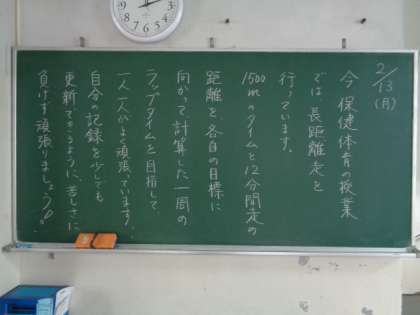 2/13(月)
今保健体育の授業
では長距離走を
行っています。
1500mのタイムと12分間走の
距離を、各自の目標に
向かって計算した一周の
ラップタイムを目指して
一人一人がよく頑張っています。
自分の記録を少しでも
更新できるように、苦しさに
負けず頑張りましょう!